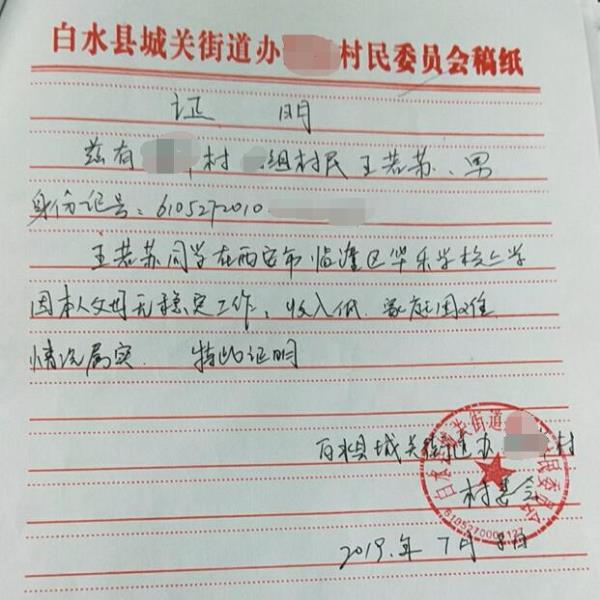 白水县城关街道办 村民委员会稿纸
证 明
兹有 村 组村民王若苏、男
身份证号：6105272010
王若苏同学在西安市临潼区华乐学校上学
因本人父母无稳定工作，收入低．家庭困难
情况属实． 特此证明
白水县城关街道办 村
村委会
2019年7月8日
白水县城关街道 村民委员会